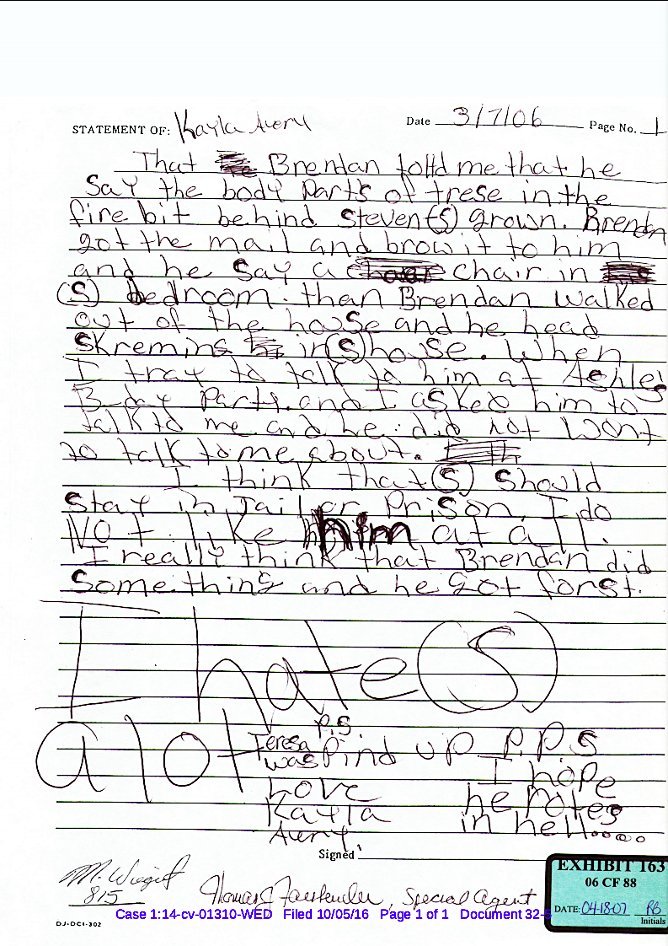 STATEMENT OF: Kayla Avery Date 3/7/06 Page No. 1
That Brendan totld me that he
Say the body Parts of trese in the
fire bit behind Steven (S) grown. Brendan
got the mail and brow it to him
and he say a chair in
(S) bedroom. than Brendan walked
out of the house and he head
Skreming in (S) house. When
I tray to talk to him at Ashleis
B-day Party. and I asked him to
talk to me and he did not wont
to talk to me about.
I think that (S) Should
Stay in Jail or Prison. I do
Not like him at all.
I really think that Brendan did
Something and he got forst.
I hate (S)
a lot
P.S
Teresa
was Pind up
Love
Kayla
Avery
P.P.S
I hope
he rotes
in hell.....
Signed
M. Wiegert
815
Thomas J Fassbender, Special Agent
EXHIBIT 163
06 CF 88
DATE: 04-18-07 RB
Initials
Case 1:14-cv-01310-WED Filed 10/05/16 Page 1 of 1 Document 32-
DJ-DCI-302